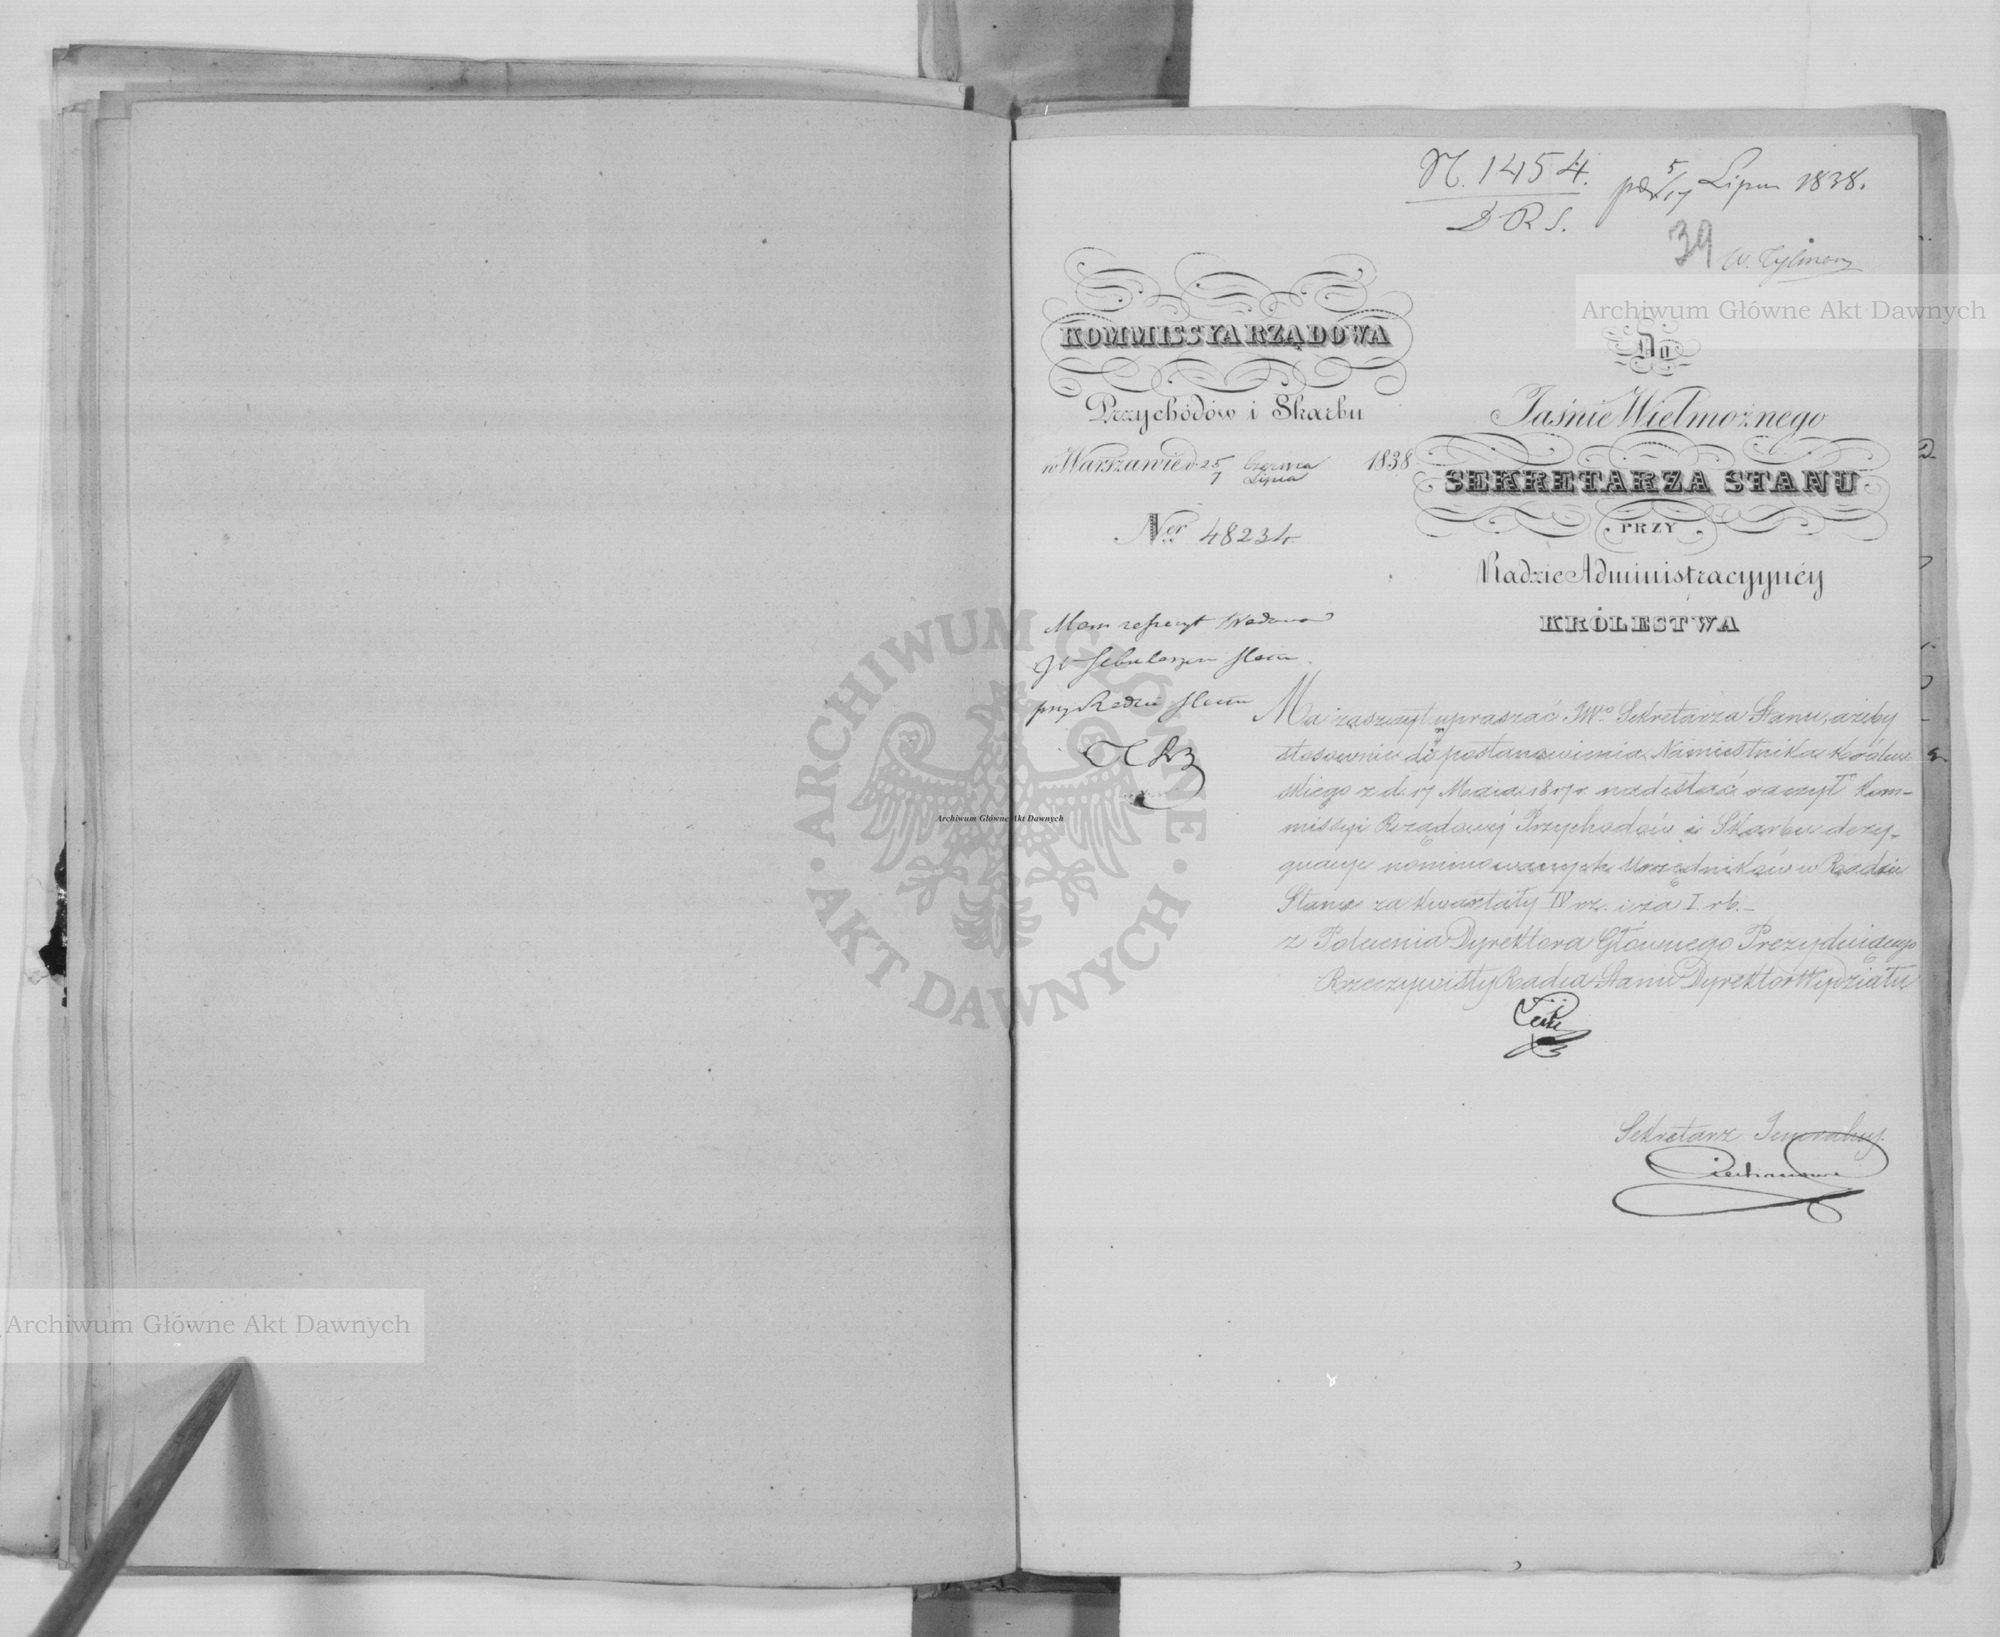 N. 1454.
D R S.
pr 5/17 Lipca 1838.
39
KOMMISSYA RZĄDOWA
Przychodów i Skarbu
w Warszawie d. 25/7 Czerwca/Lipca 1838
Ner 48234.
Do
Jaśnie Wielmożnego
SEKRETARZA STANU
PRZY
Radzie Administracyjnéy
KRÓLESTWA
przy Radzie Stanu
Ma zaszczyt upraszać JWo Sekretarza Stanu, ażeby
stosownie do postanowienia Namiestnika Królew
skiego z d. 17 Maia 18 r. nadesłać raczył Kom-
missyi Rządowej Przychodów i Skarbu dezy-
gnacye nominowanych Urzędników w Radzie
Stanu za kwartały IV rz. i za I. rb. –
z Polecenia Dyrektora Głównego Prezyduiącego
Rzeczywisty Radca Stanu Dyrektor Wydziału
Sekretarz Jeneralny
Archiwum Główne Akt Dawnych
Archiwum Główne Akt Dawnych
Archiwum Główne Akt Dawnych
ARCHIWUM GŁÓWNE · AKT DAWNYCH ·